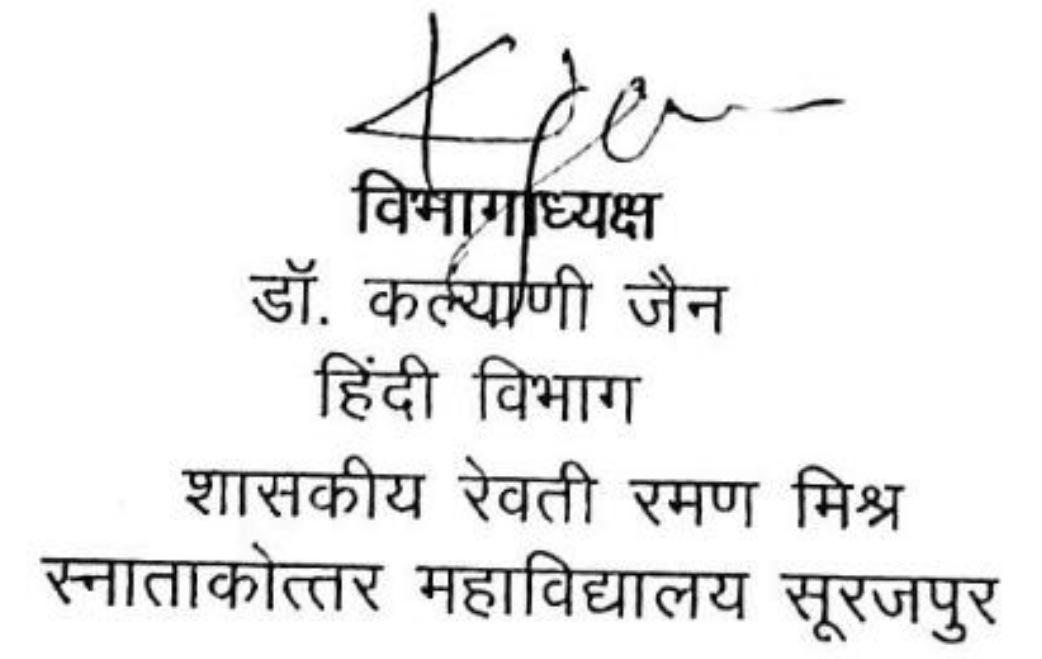 विभागाध्यक्ष
डॉ. कल्याणी जैन
हिंदी विभाग
शासकीय रेवती रमण मिश्र
स्नाताकोत्तर महाविद्यालय सूरजपुर